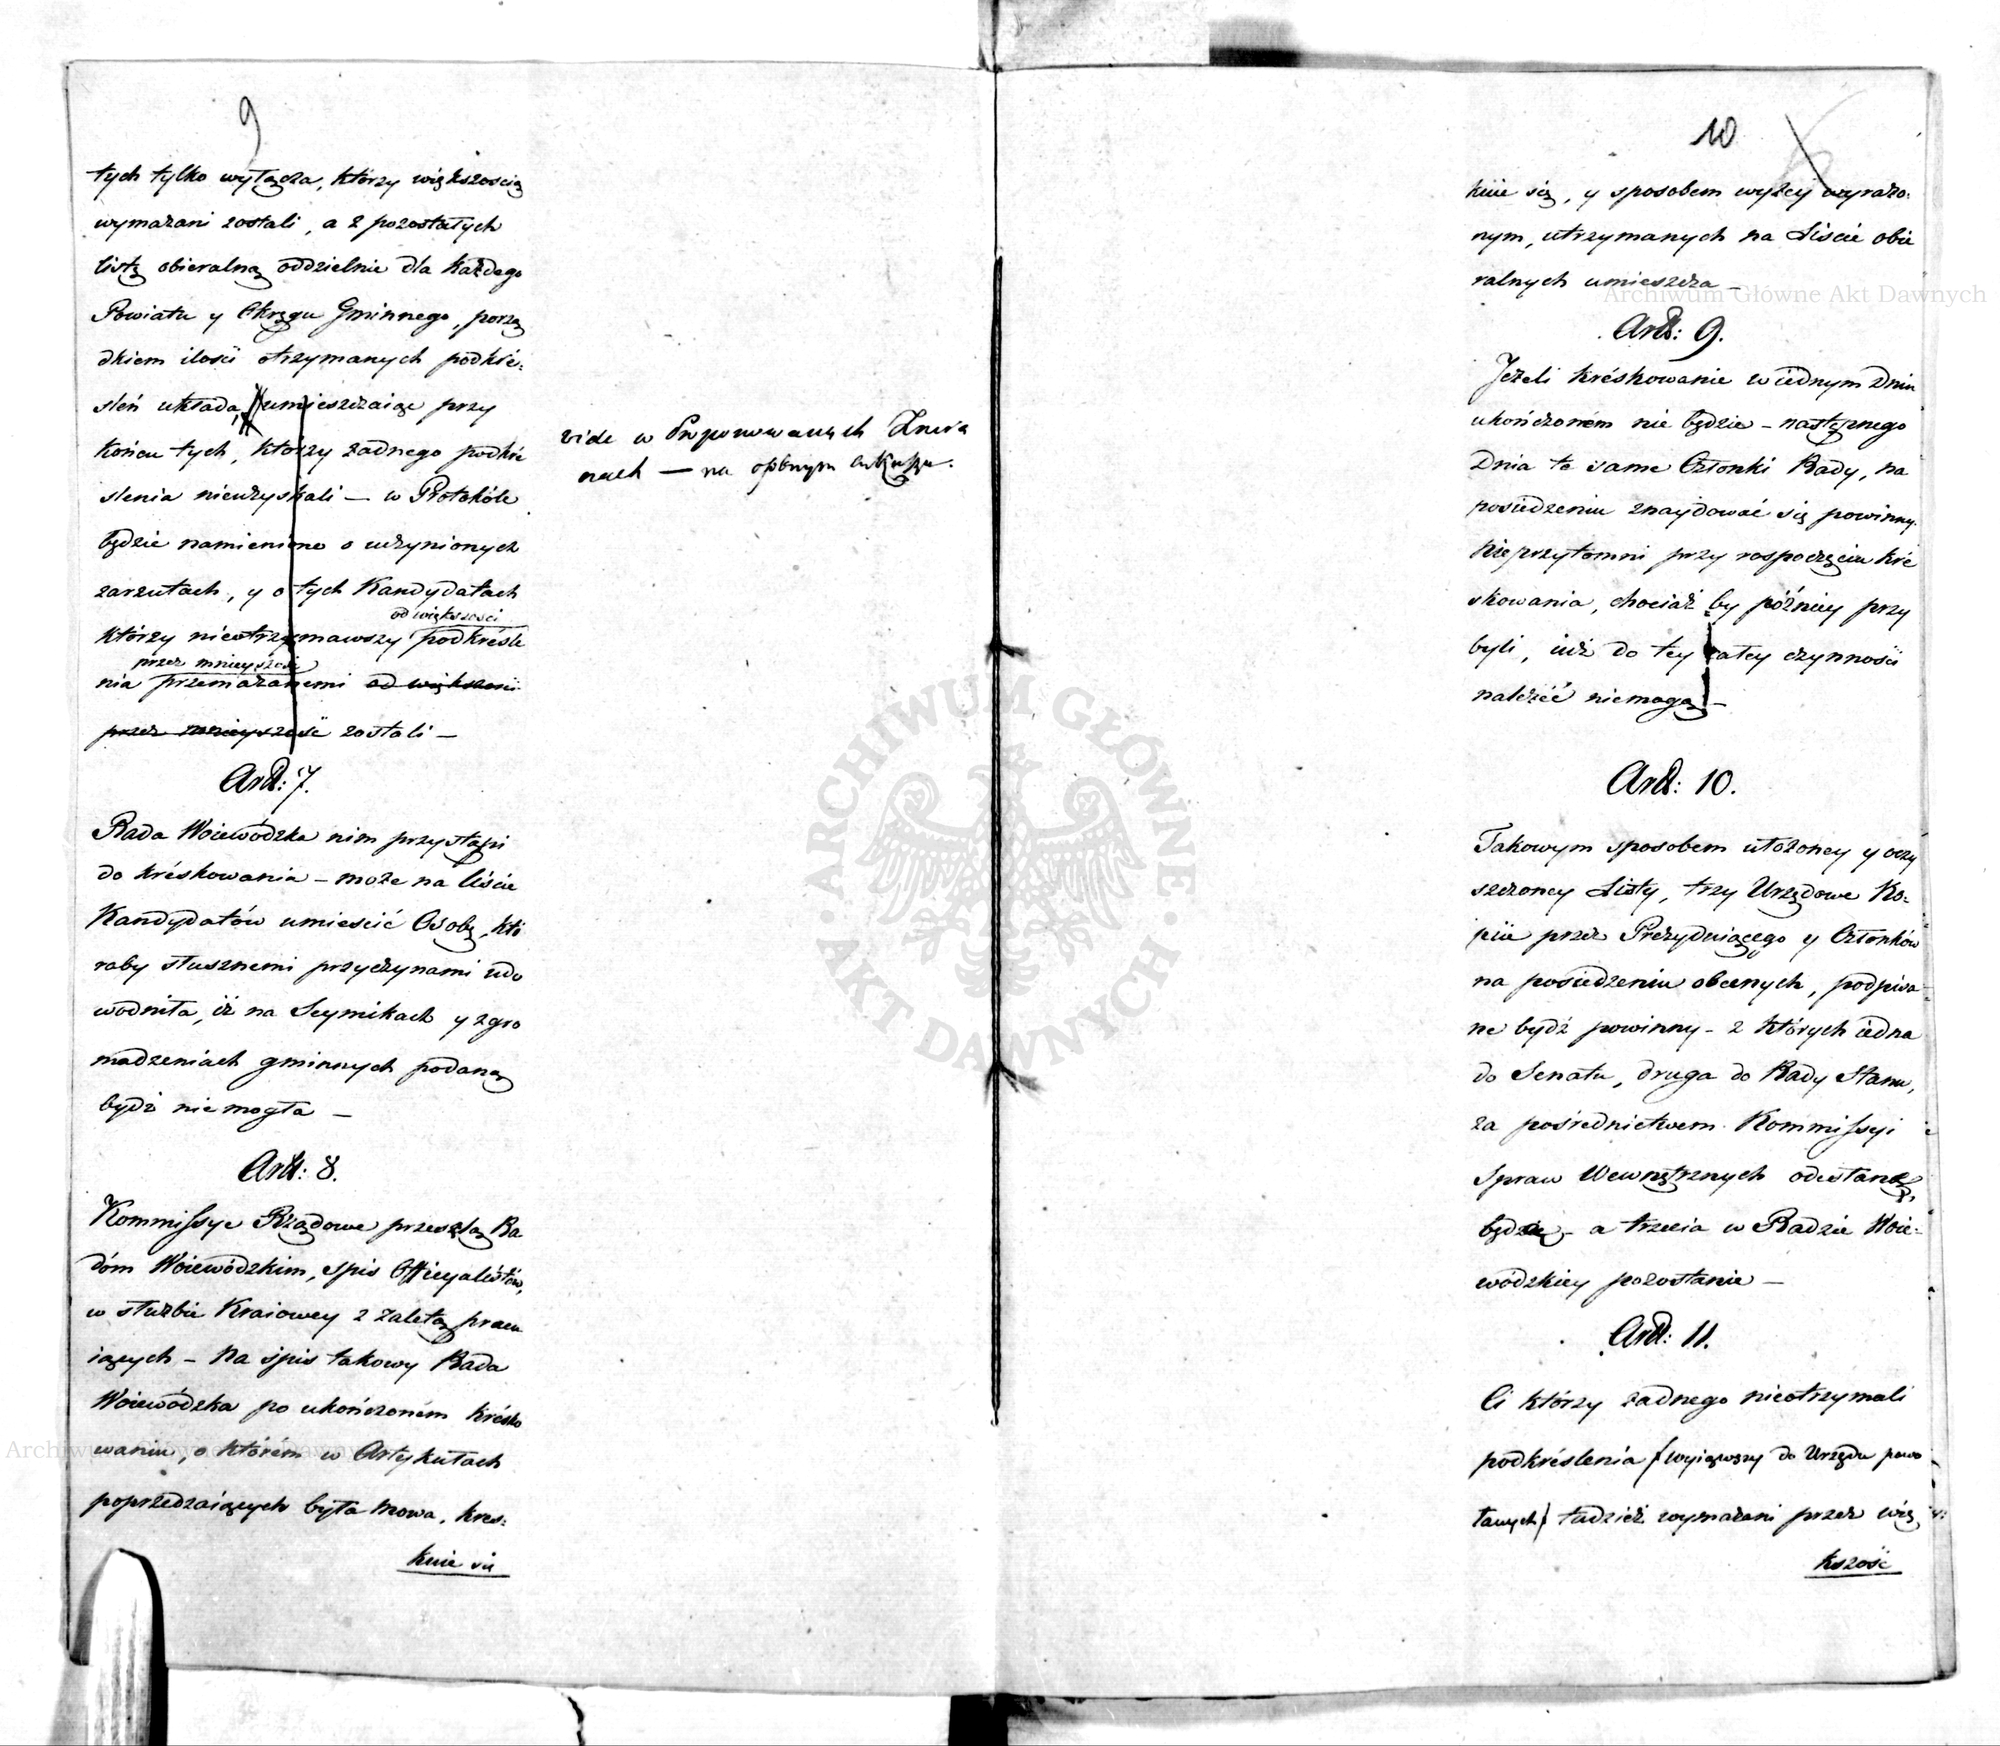 9
tych tylko wyłącza, którzy większością
wymazani zostali, a z pozostałych
listę obieralną oddzielnie dla każdego
Powiatu y Okręgu Gminnego, porzą
dkiem ilości otrzymanych podkré-
śleń układa, umieszczaiąc przy
końcu tych, którzy żadnego podkré
ślenia nieuzyskali — w Protokóle
będzie namienione o uczynionych
zarzutach, y o tych Kandydatach
od większości
którzy nieotrzymawszy podkréśle
przez mnieyszość
nia przemazanemi od większości
przez mnieyszość zostali —
Art: 7.
Rada Woiewódzka nim przystąpi
do kréskowania — może na liście
Kandydatów umieścić Osobę, któ
raby słusznemi przyczynami udo
wodniła, iż na Seymikach y zgro
madzeniach gminnych podaną
bydź niemogła —
Art: 8.
Kommissye Rządowe prześzlą Ra
dóm Woiewódzkim, spis Officyalistów,
w służbie Kraiowey z zaletą pracu
iących — Na spis takowy Rada
Woiewódzka po ukończoném krésko
waniu, o którém w Artykułach
poprzedzaiących była mowa, kres-
kuie się
vide w Proponowanych Zmia
nach — na osobnym Arkuszu.
10
kuie się, y sposobem wyżey wyrażo-
nym, utrzymanych na Liście obie
ralnych umieszcza —
Art: 9.
Jeżeli kréskowanie w iednym Dniu
ukończoném nie będzie — następnego
Dnia te same Członki Rady, na
posiedzeniu znaydować się powinny.
Nieprzytomni przy rozpoczęciu kré
skowania, chociaż by później przy
byli, iuż do tey całey czynności
należéć niemogą —
Art: 10.
Takowym sposobem ułożoney y oczy
szczoney Listy, trzy Urzędowe Ko-
piie przez Prezyduiącego y Członków
na posiedzeniu obecnych, podpisa
ne bydź powinny — z których iedna
do Senatu, druga do Rady Stanu,
za pośrednictwem Kommissyi
Spraw Wewnętrznych odesłane
będą — a trzecia w Radzie Woie-
wódzkiey pozostanie —
Art: 11.
Ci którzy żadnego nieotrzymali
podkréślenia (wyiąwszy do Urzędu powo
łanych) tudzież wymazani przez wię
kszość
Archiwum Główne Akt Dawnych
Archiwum Główne Akt Dawnych
ARCHIWUM GŁÓWNE
AKT DAWNYCH